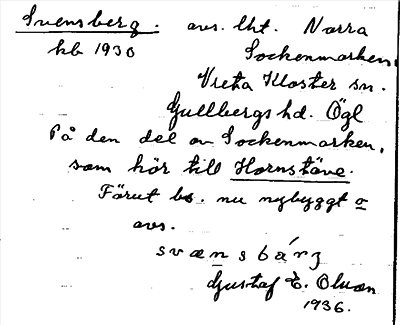 Svensberg. avs. lht. Norra
kb 1930 Sockenmarken,
Vreta Kloster sn.
Gullbergs hd. Ögl
På den del av Sockenmarken,
som hör till Hornstäve.
Förut bs. nu nybyggt o
avs.
svænsbárz
Gustaf E. Olsson
1936.